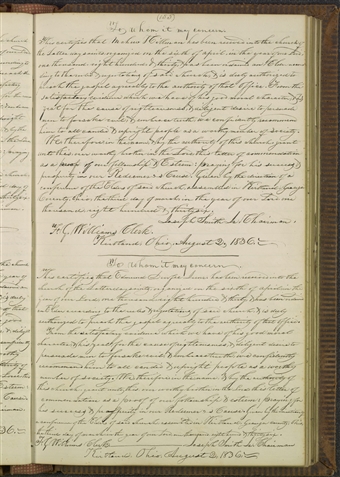 To whom it may concern
This certifies that has been received into the church
of the Latter day saints organized on the sixth of april in the year of our
Lord one thousand eight hundred & thirty, & has been ordained an Elder
according to the rules & regulations of said church, & is duly authorized to
preach the gospel agreeably to the authority of that office. From the
satisfactory evidence which we have of his good moral character, & his
zeal for the cause of righteousness & diligent desire to persuade
men to forsake evil & embrace truth we confidently recommend
him to all candid & upright people as a worthy member of society.
We therefore in the name & by the authority of this church grant
unto this our worthy brother in the Lord this letter of communication
as a proof of our fellowship & Esteem: praying for his success &
prosperity in our Redeemer's Cause. Given by the direction of a
conference of the Elders of said church assembled in Kirtland Geauga
County, Ohio, the third day of march in the year of our Lord one
thousand eight hundred & thirty six.
Joseph Smith Jr. Chairman
F. G. Williams Clerk.
Kirtland Ohio August 2, 1836.
To whom it may concern
This certifies that has been received into the
church of the Latter day saints, organized on the sixth of april in the
year of our Lord one thousand eight hundred & thirty & has been ordained
an Elder according to the rules & regulations of said church & is duly
authorized to preach the gospel agreeably to the authority of that office.
From the satisfactory evidence which we have of his good moral
character, & his zeal for the cause of righteousness, & diligent desire to
persuade men to forsake evil & embrace truth we confidently
recommend him to all candid & upright people as a worthy
member of society. We therefore in the name & by the authority of
this church grant unto this our worthy brother in the Lord this letter of
communication as a proof of our fellowship & esteem: praying for
his success & prosperity in our Redeemer's Cause. Given by the direction
of a conference of the Elders of said church assembled in Kirtland Geauga county, Ohio
the third day of march in the year of our Lord one thousand eight hundred & thirty six.
F. G. Williams Clerk Joseph Smith Jr. Chairman
Kirtland Ohio August 2, 1836.